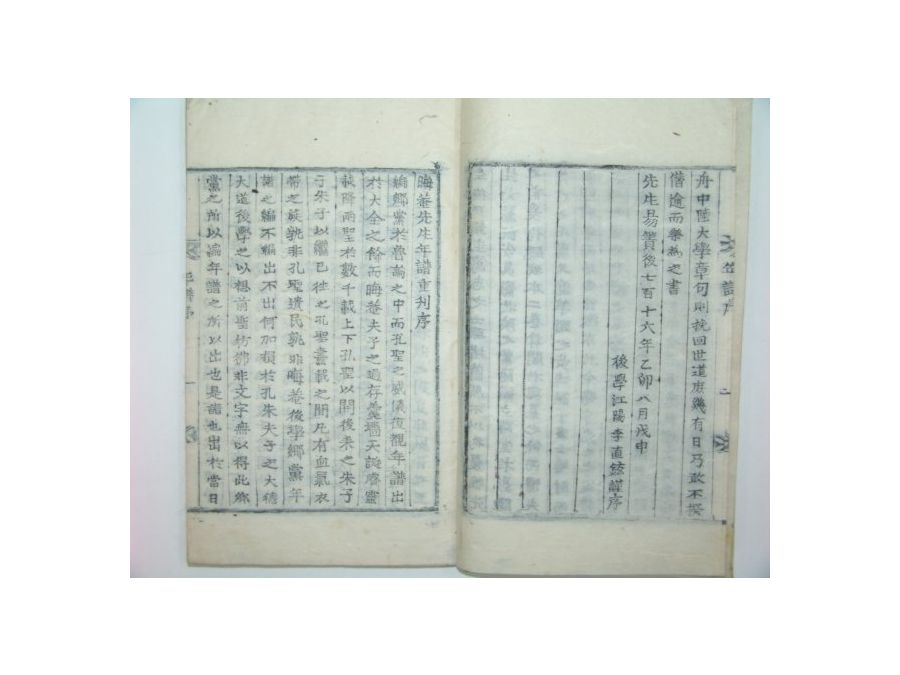 舟中陸大學章句則挽回世道庶幾有日乃敢不揆
僭逾而樂為之書
先生易簀後七百十六年乙卯八月戊申
後學江陽李直鉉謹序
年譜序
二
晦菴先生年譜重刋序
鄕黨於魯論之中而孔聖之威儀復覩年譜出
於大全之餘而晦菴夫子之道存羹墻天誕膺靈
載降兩聖於數千載上下孔聖以開後來之朱子
朱子以繼已徃之孔聖覆載之間凡有血氣衣
帶之族孰非孔聖遺民孰非晦菴後學鄕黨年
譜之編不編出不出何加損於孔朱夫子之大德
大道後學之以想前聖彷彿非文字無以得此鄕
黨之所以編年譜之所以出也是譜也出於當日
年譜序
一